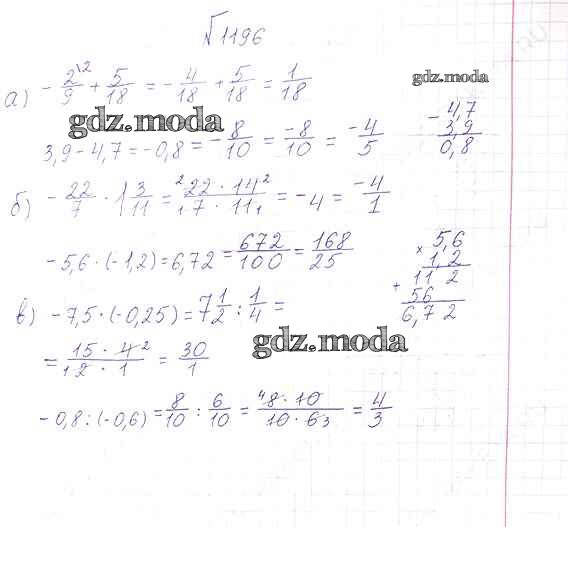 √1196
а) - 2\2/9 + 5/18 = - 4/18 + 5/18 = 1/18
gdz.moda
gdz.moda
3,9 - 4,7 = -0,8 = - 8/10 = -8/10 = -4/5
- 4,7
3,9
0,8
б) - 22/7 · 1 3/11 = 2 22 · 14 2 / 1 7 · 11 1 = -4 = -4/1
-5,6 · (-1,2) = 6,72 = 672/100 = 168/25
× 5,6
1,2
+ 11 2
56
6,72
в) -7,5 · (-0,25) = 7 1/2 : 1/4 =
gdz.moda
= 15 · 4 2 / 1 2 · 1 = 30/1
-0,8 : (-0,6) = 8/10 : 6/10 = 4 8 · 10 / 10 · 6 3 = 4/3